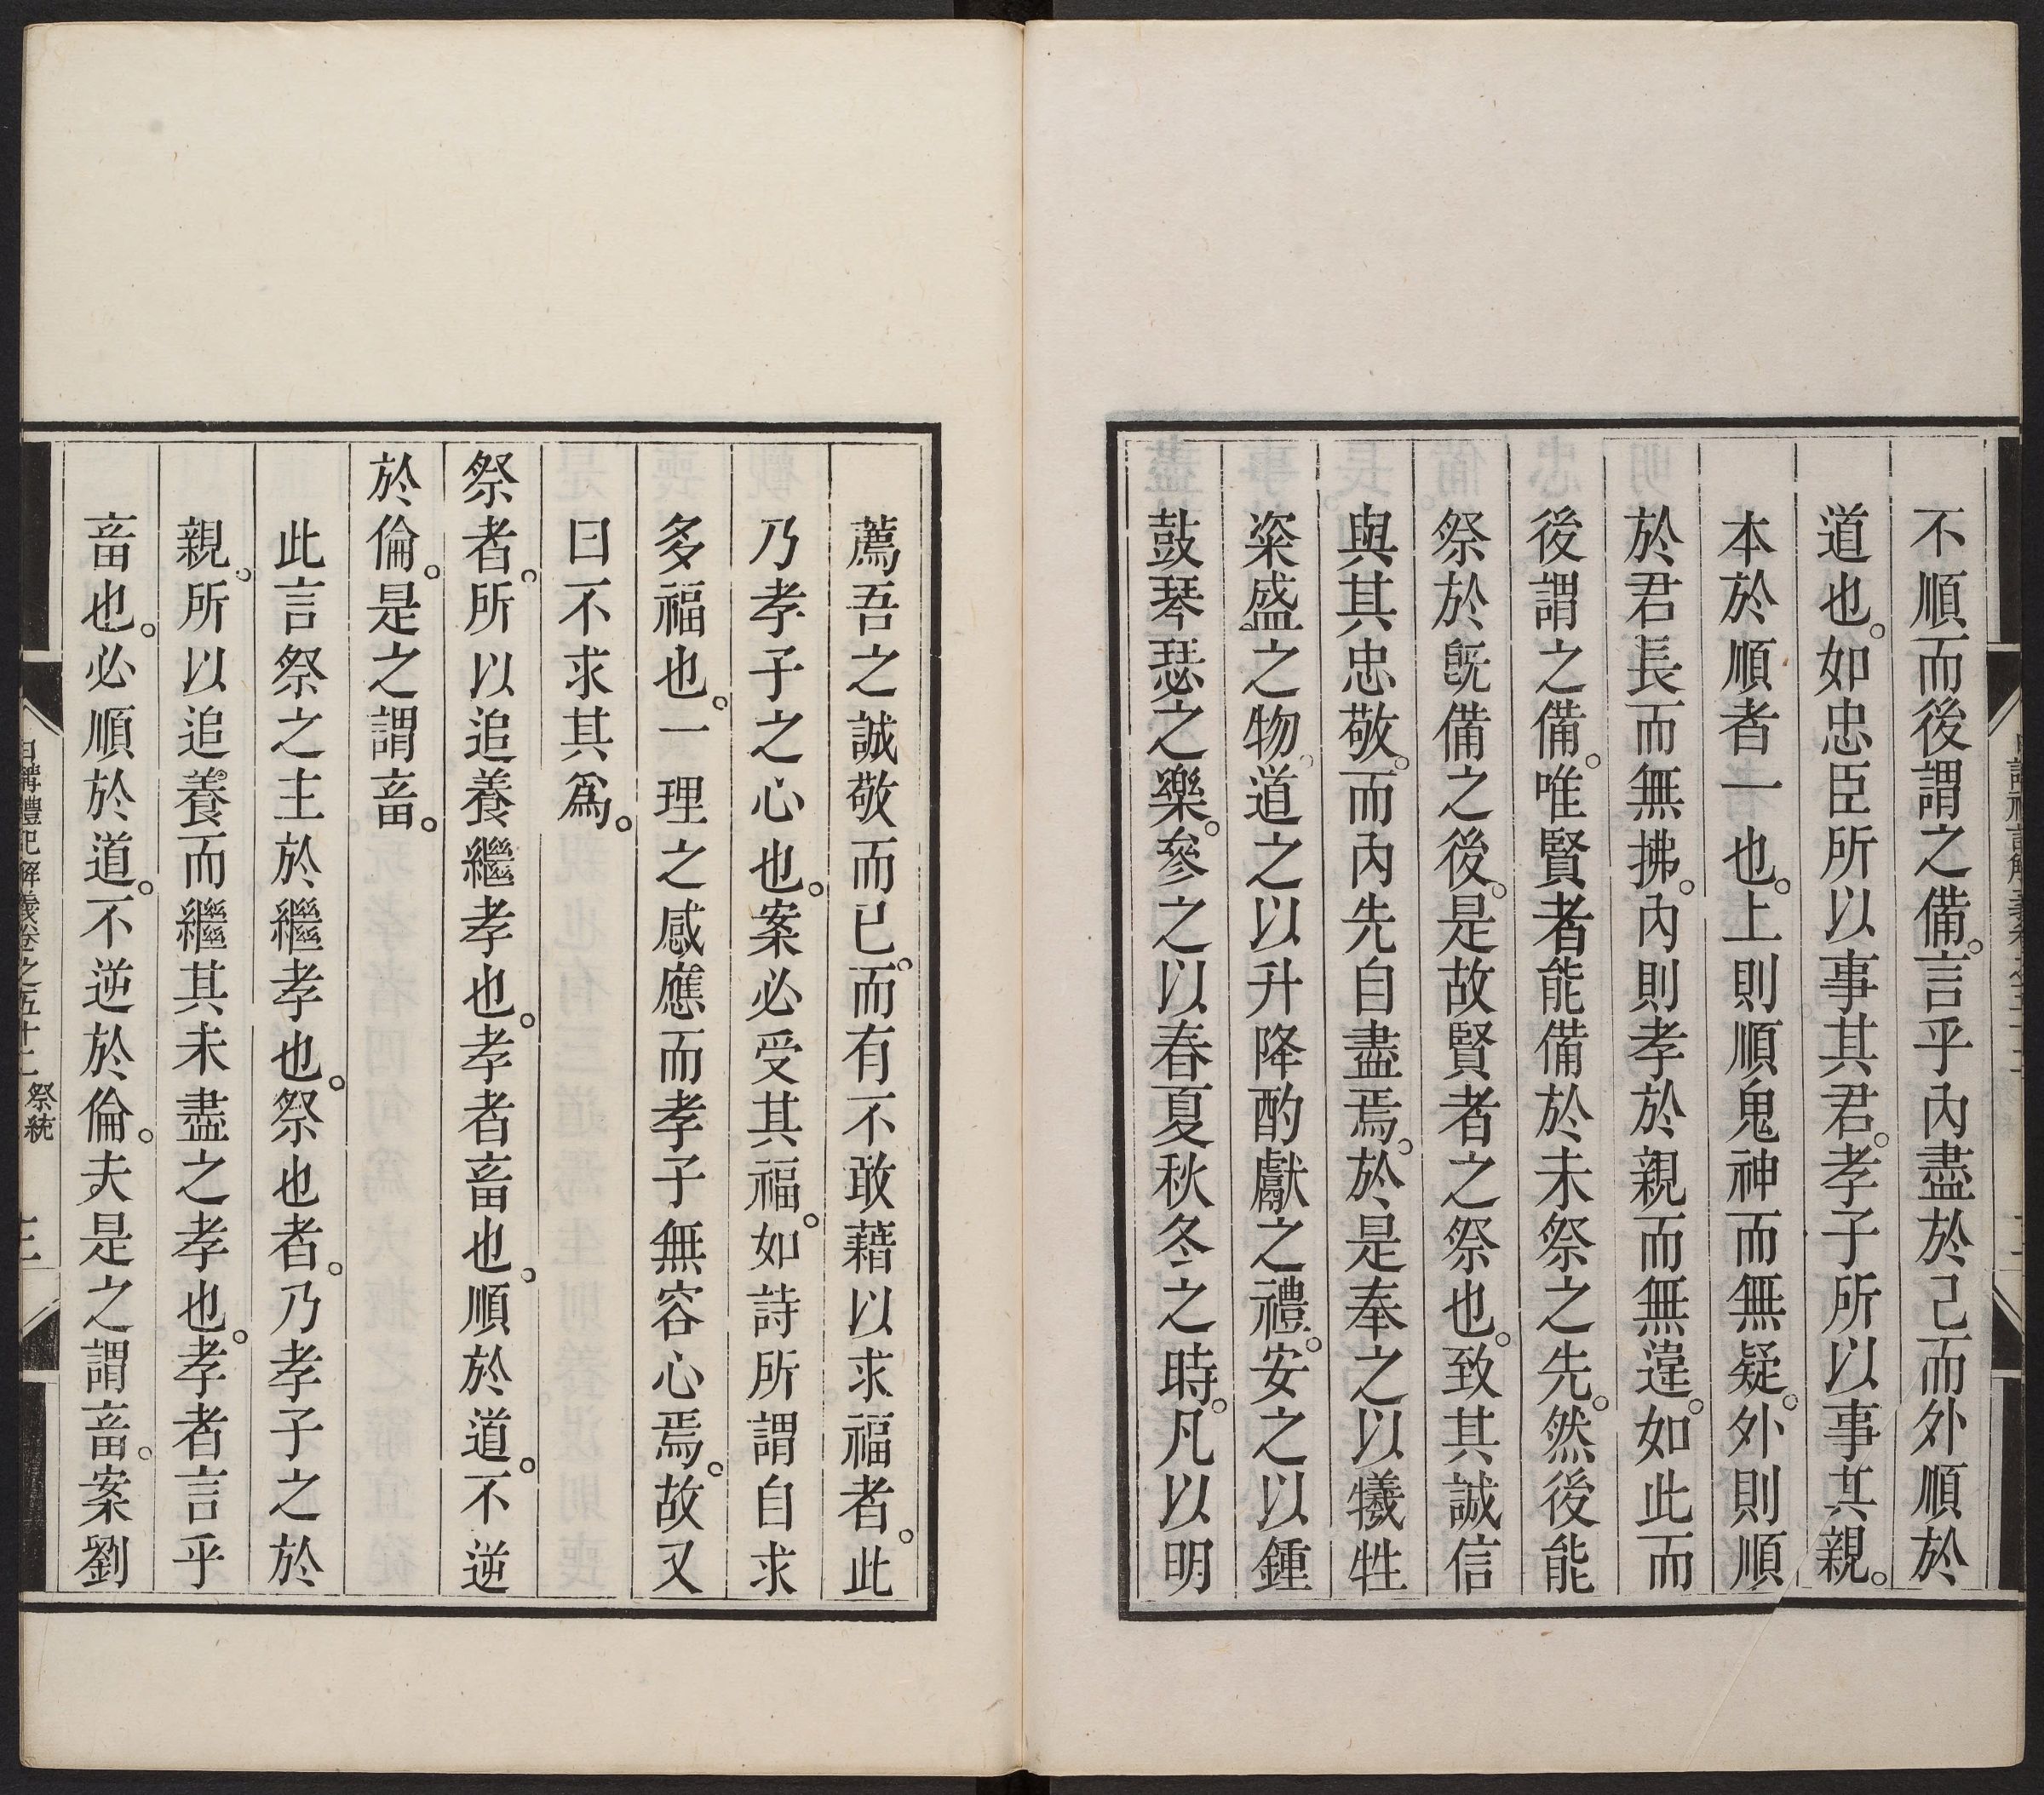 不順而後謂之備。言乎內盡於己而外順於
道也。如忠臣所以事其君。孝子所以事其親。
本於順者一也。上則順鬼神而無疑。外則順
於君長而無拂。內則孝於親而無違。如此而
後謂之備。唯賢者能備於未祭之先。然後能
祭於旣備之後。是故賢者之祭也。致其誠信
與其忠敬。而內先自盡焉。於是奉之以犧牲
粢盛之物。道之以升降酌獻之禮。安之以鍾
鼓琴瑟之樂。參之以春夏秋冬之時。凡以明
薦吾之誠敬而已。而有不敢藉以求福者。此
乃孝子之心也。案必受其福。如詩所謂自求
多福也。一理之感應而孝子無容心焉。故又
曰不求其爲。
祭者。所以追養繼孝也。孝者畜也。順於道。不逆
於倫。是之謂畜。
此言祭之主於繼孝也。祭也者。乃孝子之於
親。所以追養而繼其未盡之孝也。孝者言乎
畜也。必順於道。不逆於倫。夫是之謂畜。案劉
日講禮記解義卷之五十二 祭統